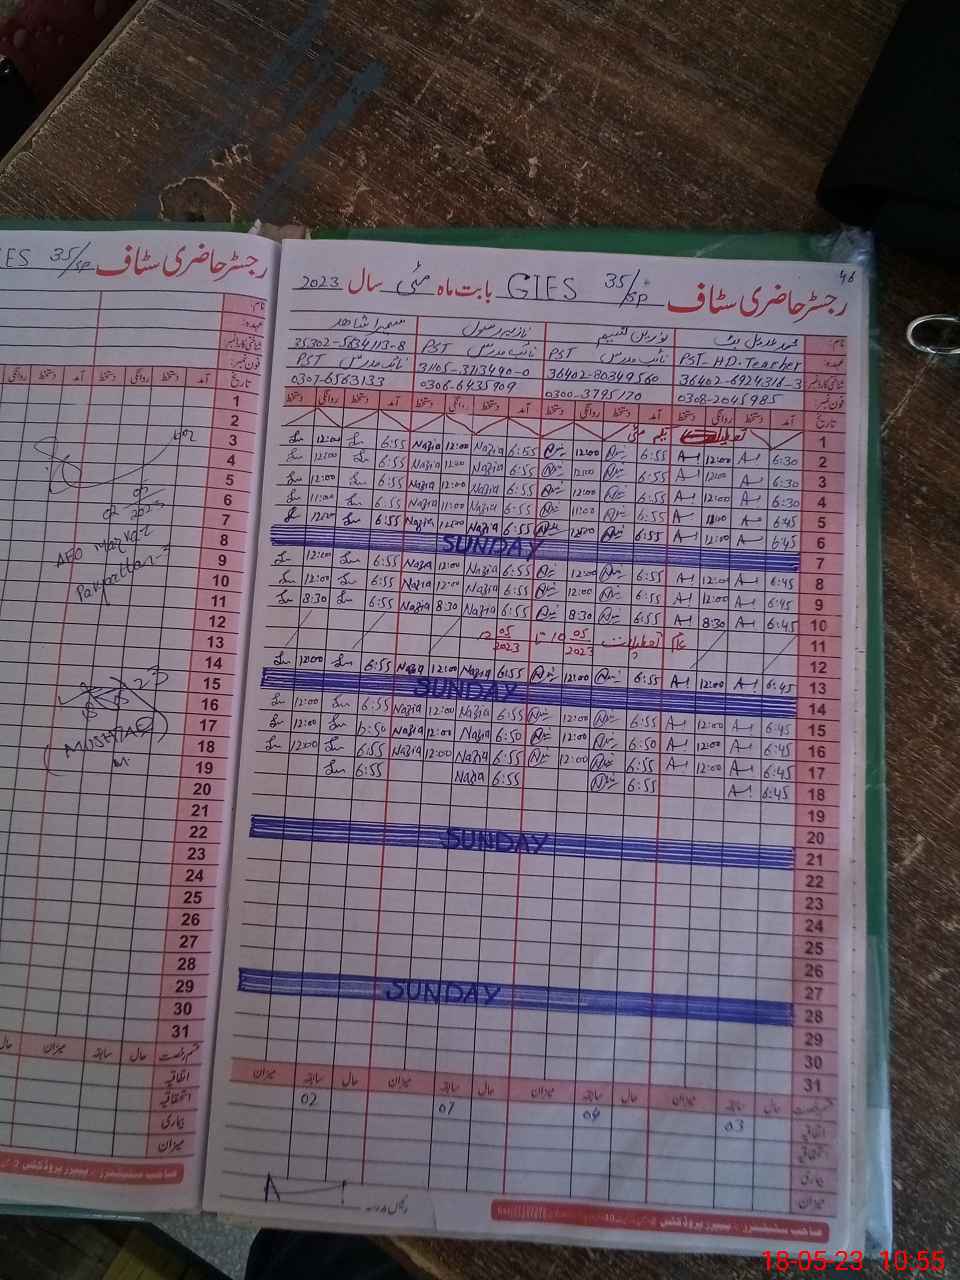 46
رجسٹر حاضری سٹاف 35/SP GIES بابت ماہ مئی سال 2023
نام:
عہدہ: PST-H.D.Teacher نائب مدرس PST نائب مدرس PST نائب مدرس PST
شناختی کارڈ نمبر 36402-6924316-3 36402-80349560 31105-3713490-0 35302-5634113-8
فون نمبر: 0308-2045985 0300-3795170 0306-6435909 0307-6563133
تاریخ آمد دستخط روانگی دستخط آمد دستخط روانگی دستخط آمد دستخط روانگی دستخط آمد دستخط روانگی دستخط
1 یکم مئی
2 6:30 12:00 6:55 12:00 6:55 Nazia 12:00 Nazia 6:55 12:00
3 6:30 12:00 6:55 12:00 6:55 Nazia 12:00 Nazia 6:55 12:00
4 6:30 12:00 6:55 12:00 6:55 Nazia 12:00 Nazia 6:55 12:00
5 6:45 11:00 6:55 11:00 6:55 Nazia 11:00 Nazia 6:55 11:00
6 6:45 12:00 6:55 12:00 6:55 Nazia 12:00 Nazia 6:55 12:00
7 SUNDAY
8 6:45 12:00 6:55 12:00 6:55 Nazia 12:00 Nazia 6:55 12:00
9 6:45 12:00 6:55 12:00 6:55 Nazia 12:00 Nazia 6:55 12:00
10 6:45 8:30 6:55 8:30 6:55 Nazia 8:30 Nazia 6:55 8:30
11 عام تعطیلات 05/2023 05/2023
12
13 6:45 12:00 6:55 12:00 6:55 Nazia 12:00 Nazia 6:55 12:00
14 SUNDAY
15 6:45 12:00 6:55 12:00 6:55 Nazia 12:00 Nazia 6:55 12:00
16 6:45 12:00 6:50 12:00 6:50 Nazia 12:00 Nazia 12:00
17 6:45 12:00 6:55 12:00 6:55 Nazia 12:00 Nazia 6:55 12:00
18 6:45 6:55 6:55 Nazia 6:55
19
20
21 SUNDAY
22
23
24
25
26
27
28 SUNDAY
29
30
31
قسم رخصت حال سابقہ میزان حال سابقہ میزان حال سابقہ میزان حال سابقہ میزان
اتفاقیہ 03 04 07 02
استحقاقیہ
بیماری
میزان
رئیس مدرسہ
صاحب سٹیشنرز پیپرز پروڈکٹس
رجسٹر حاضری سٹاف 35/SP IES
نام:
عہدہ:
شناختی کارڈ نمبر
فون نمبر:
تاریخ آمد دستخط روانگی دستخط آمد دستخط روانگی
1
2
3
4
5
6
7
8
9
10
11
12
13
14
15
16
17
18
19
20
21
22
23
24
25
26
27
28
29
30
31
AEO Markaz
Pakpattan-7
MUSHTAQ
قسم رخصت حال سابقہ میزان حال
اتفاقیہ
استحقاقیہ
بیماری
میزان
صاحب سٹیشنرز پیپرز پروڈکٹس
18-05-23 10:55